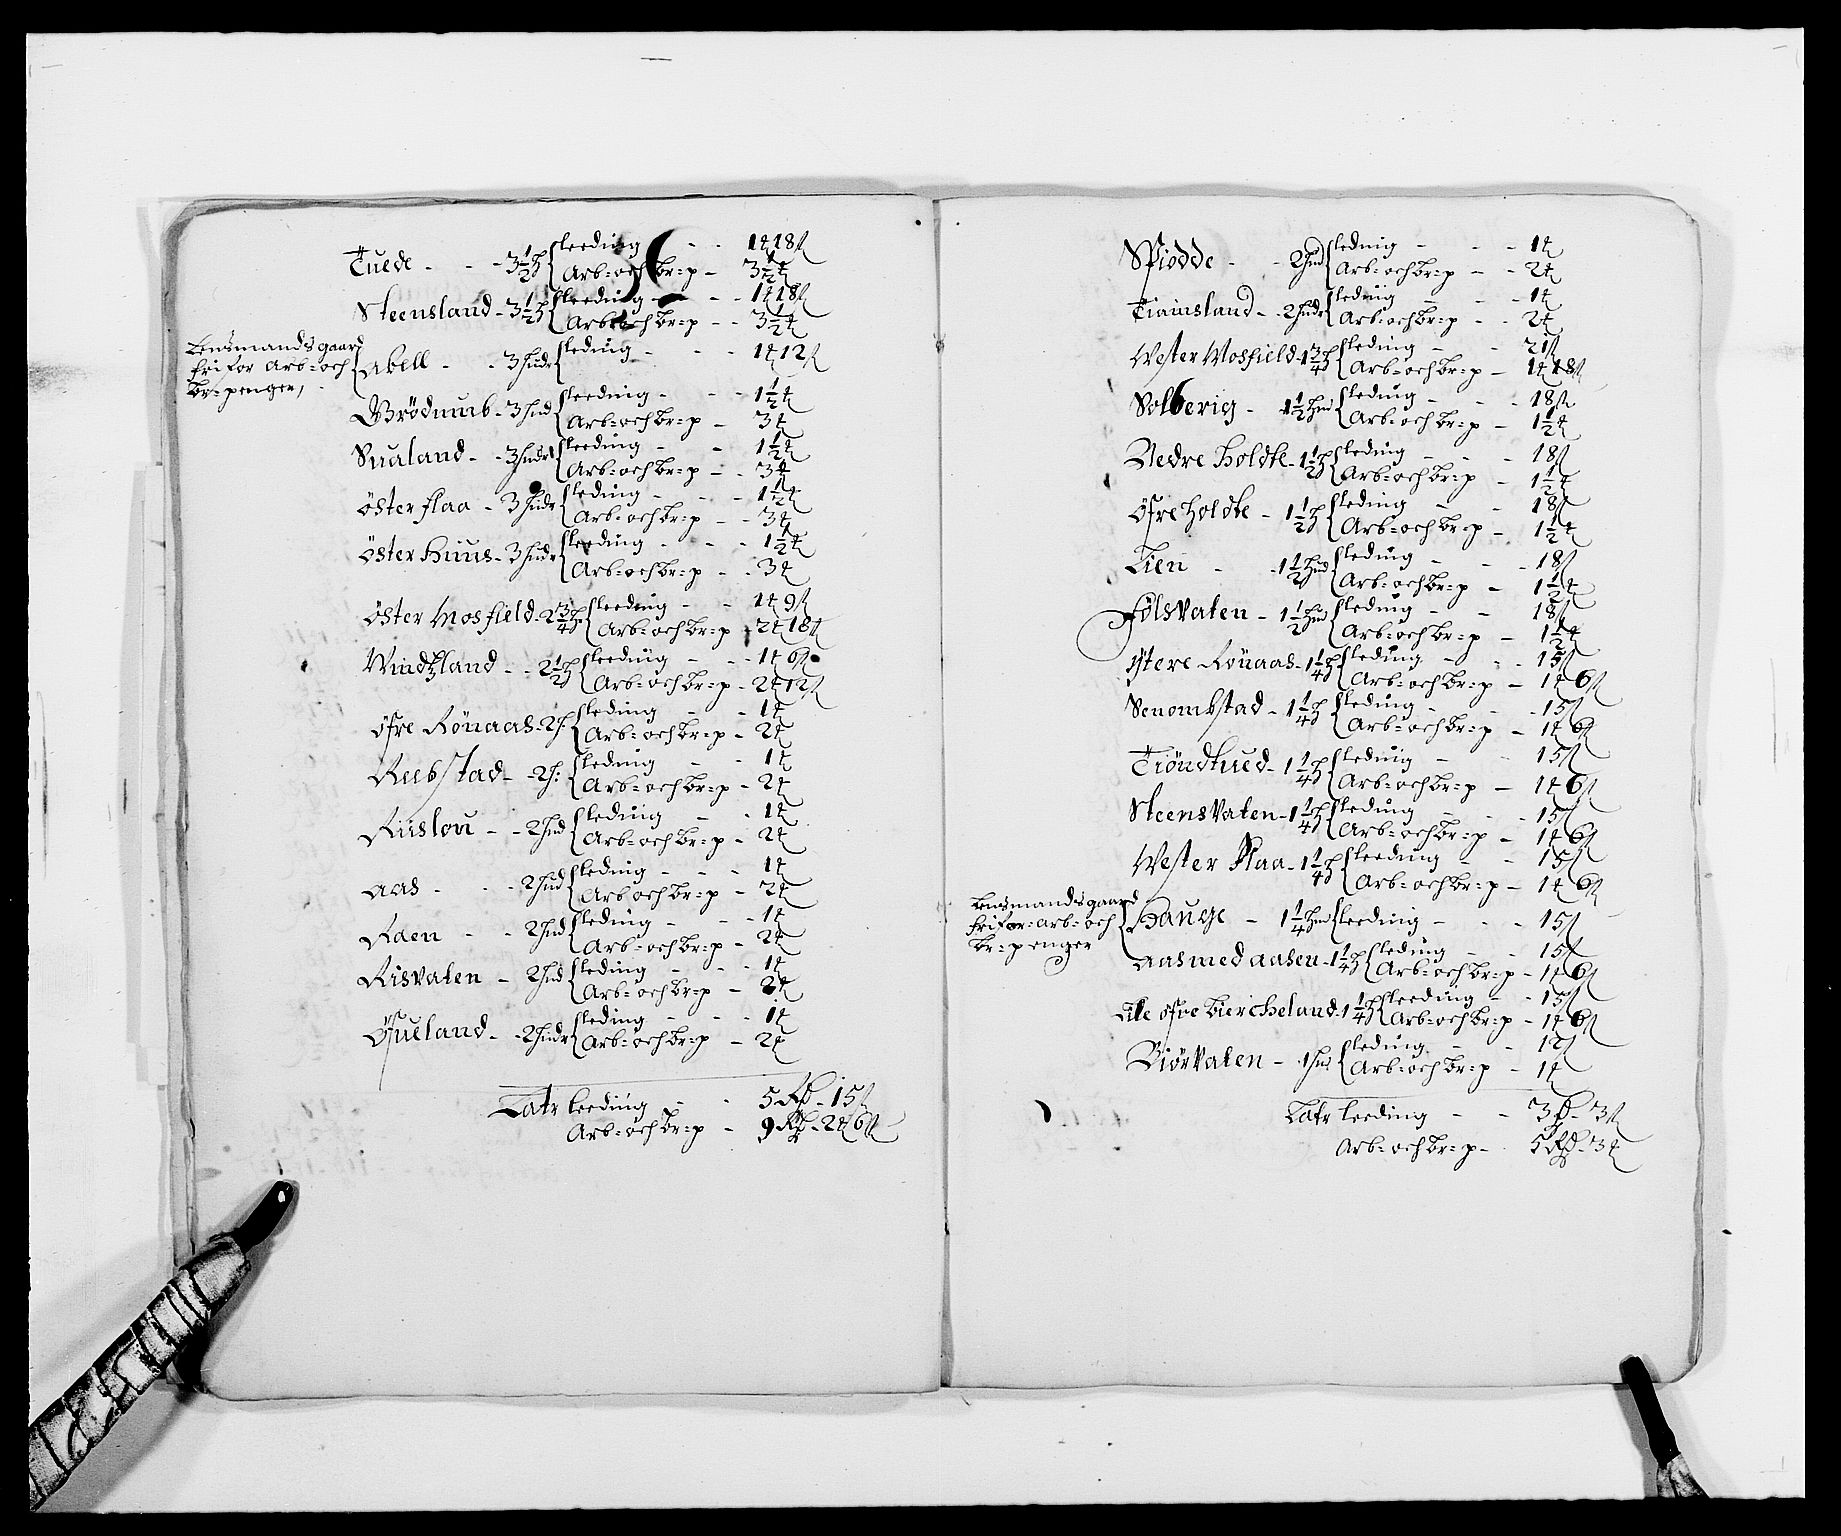 Tuede - - - 3½ h leeding - - - 1 t 18 ß
Arb: och br: p - 3½ t
Steensland - 3½ h leeding - - - 1 t 18 ß
Arb: och br: p - - 3½ t
Lensmands gaard
fri for Arb: och
br: penger,
Akell - - 3 hudr leding - - - 1 t 12 ß
Brödumb - 3 hud leeding - - - 1½ t
Arb: och br: p - 3 t
Sualand - - 3 hudr leeding - - 1½ t
Arb: och br: p - - 3 t
öster flaa - 3 hudr leding - - - 1½ t
Arb: och br: p - - 3 t
öster Huus - 3 hudr leeding - - - 1½ t
Arb: och br: p - - 3 t
öster Mosfield - 2¾ h leeding - - 1 t 9 ß
Arb: och br: p - 2 t 18 ß
Windtzland - - 2½ h leeding - - - 1 t 6 ß
Arb: och br: p - 2 t 12 ß
öfre Rönaas - 2 h leding - - 1 t
Arb: och br: p - 2 t
Reebstad - - 2 h: leding - - 1 t
Arb: och br: p - 2 t
Riislou - - 2 hud leding - - 1 t
Arb: och br: p - 2 t
Aas - - - 2 hud leding - - - 1 t
Arb och br: p - 2 t
Roen - - 2 hud leding - - - 1 t
Arb: och br: p - 2 t
Risvaten - 2 hud leding - - - 1 t
Arb: och br: p - 2 t
Öfueland - - 2 hudr leding - - - 1 t
Arb: och br: p - 2 t
Latr leeding - - 5 Rd - 15 ß
Arb: och br: p - 9 Rd - 2 t 6 ß
Spiodde - - 2 hud lednig - - - 1 t
Arb: och br: p - - 2 t
Tiainsland - - 2 hudr leding - - - 1 t
Arb: och br: p - - 2 t
Wester Mosfield - 1¾ h leding - - 21 ß
Arb: och br: p - 1 t 18 ß
Solberig - 1½ hud leding - - - 18 ß
Arb: och br: p - 1½ t
Nedre Holdte - 1½ h leding - - - 18 ß
Arb: och br: p - 1½ t
öfre holdte - 1½ h leeding - - 18 ß
Arb: och br: p - 1½ t
Lien - - 1½ hud leding - - - 18 ß
Arb: och br: p - 1½ t
Fölsvaten - 1½ hud leding - - 18 ß
Arb: och br: p - 1½ t
ÿtere Rönaas - 1¼ h leding - - 15 ß
Arb: och br: p - 1 t 6 ß
Senombstad - 1¼ h leding - - - 15 ß
Arb: och br: p - 1 t 6 ß
Tröndtued - 1¼ h leding - - 15 ß
Arb: och br: p - 1 t 6 ß
Steensvaten - 1¼ h leding - - - 15 ß
Arb: och br: p - 1 t 6 ß
Wester Flaa - 1¼ h leeding - - 15 ß
Arb: och br: p - 1 t 6 ß
Lensmandsgaard
fri for: arb: och
br: penger
Hauge - 1¼ hud leeding - - - 15 ß
Aas med aasen - 1¼ h leding - - 15 ß
Arb: och br: p - 1 t 6 ß
Lile öfre biercheland - 1¼ h leeding - - 15 ß
Arb: och br: p - 1 t 6 ß
Biörvaten - 1 hud leding - - 12 ß
Arb: och br: p - 1 t
Latr leeding - - 3 Rd - 3 ß
Arb: och br: p - 5 Rd - 3 t